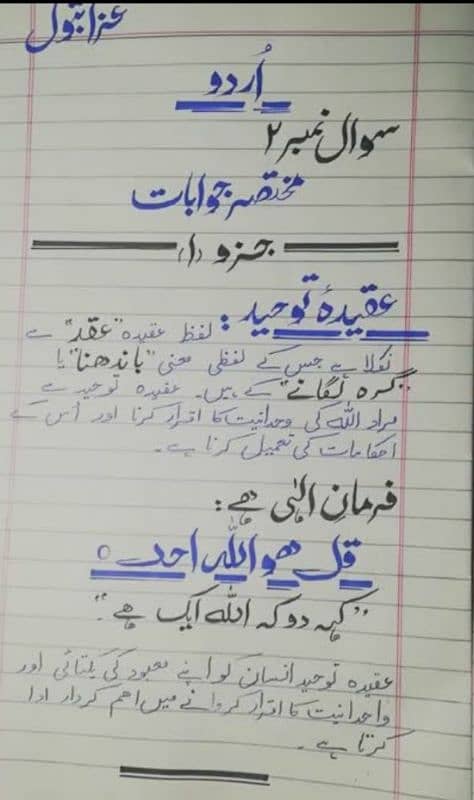 عزا بتول
اُردو
سوال نمبر ۲
مختصر جوابات
جزو (۱)
عقیدۂ توحید : لفظ عقیدہ "عقد" سے
نکلا ہے جس کے لفظی معنی "باندھنا" یا
"گرہ لگانے" کے ہیں۔ عقیدہ توحید سے
مراد اللہ کی وحدانیت کا اقرار کرنا اور اُس کے
احکامات کی تعمیل کرنا ہے۔
فرمانِ الٰہی ہے :
قل ھو اللہ احد ہ
"کہہ دو کہ اللہ ایک ہے۔"
عقیدہ توحید انسان کو اپنے معبود کی یکتائی اور
واحدانیت کا اقرار کروانے میں اھم کردار ادا
کرتا ہے۔